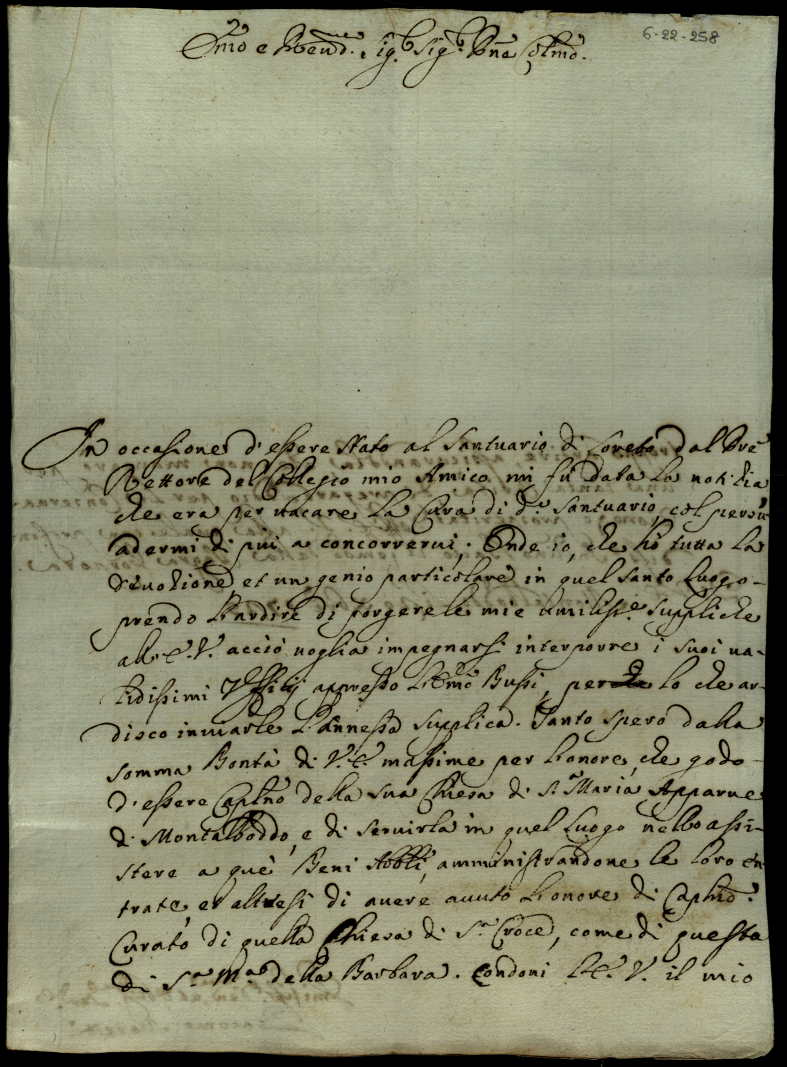 6-22-258
Em̃o e Reverd.mo Sig.r Sig.r Pñe Colmõ.
In occasione d'essere stato al Santuario di Loreto dal Pre
Rettore del Collegio mio Amico mi fu data la notitia
che era per vacare la Cura di d.o Santuario, col persu
adermi di più a concorrervi. Onde io, che hò tutta la
devozione et un genio particolare in quel Santo Luogo
prendo l'ardire di porgere le mie umiliss.e suppliche
all'E. V. acciò voglia impegnarsi interporre i suoi va-
lidissimi Uffitij appresso l'Em̃o Bussi, per lo che ar-
disco inviarle l'annessa supplica. Tanto spero dalla
somma Bontà di V. E. massime per l'onore, che godo
d'essere Caplño della sua Chiesa di S.ta Maria Apparve
di Montalboddo, e di servirla in quel Luogo nello assi-
stere a que' Beni Abb̃li, amministrandone le loro en
trate, et altresì di avere avuto l'onore di Caplño.
Curato di quella Chiesa di S.ta Croce, come di questa
di S.ta M.a della Barbara. Condoni l'E. V. il mio